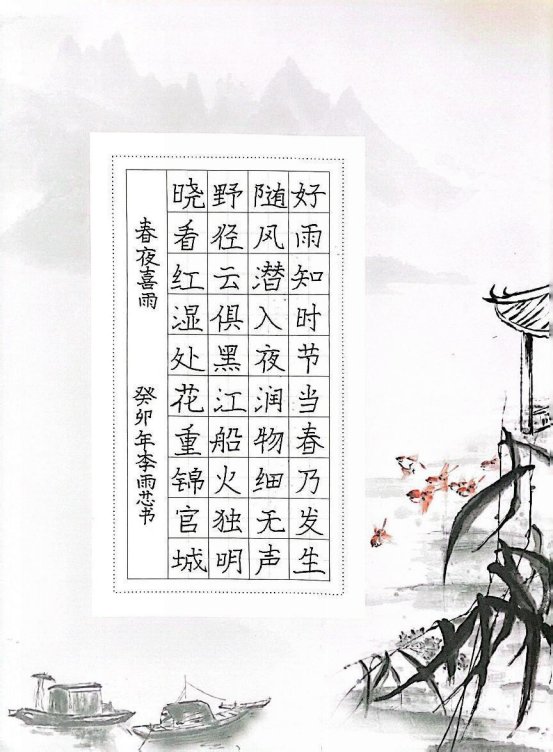 好雨知时节当春乃发生
随风潜入夜润物细无声
野径云俱黑江船火独明
晓看红湿处花重锦官城
春夜喜雨
癸卯年李雨芯书